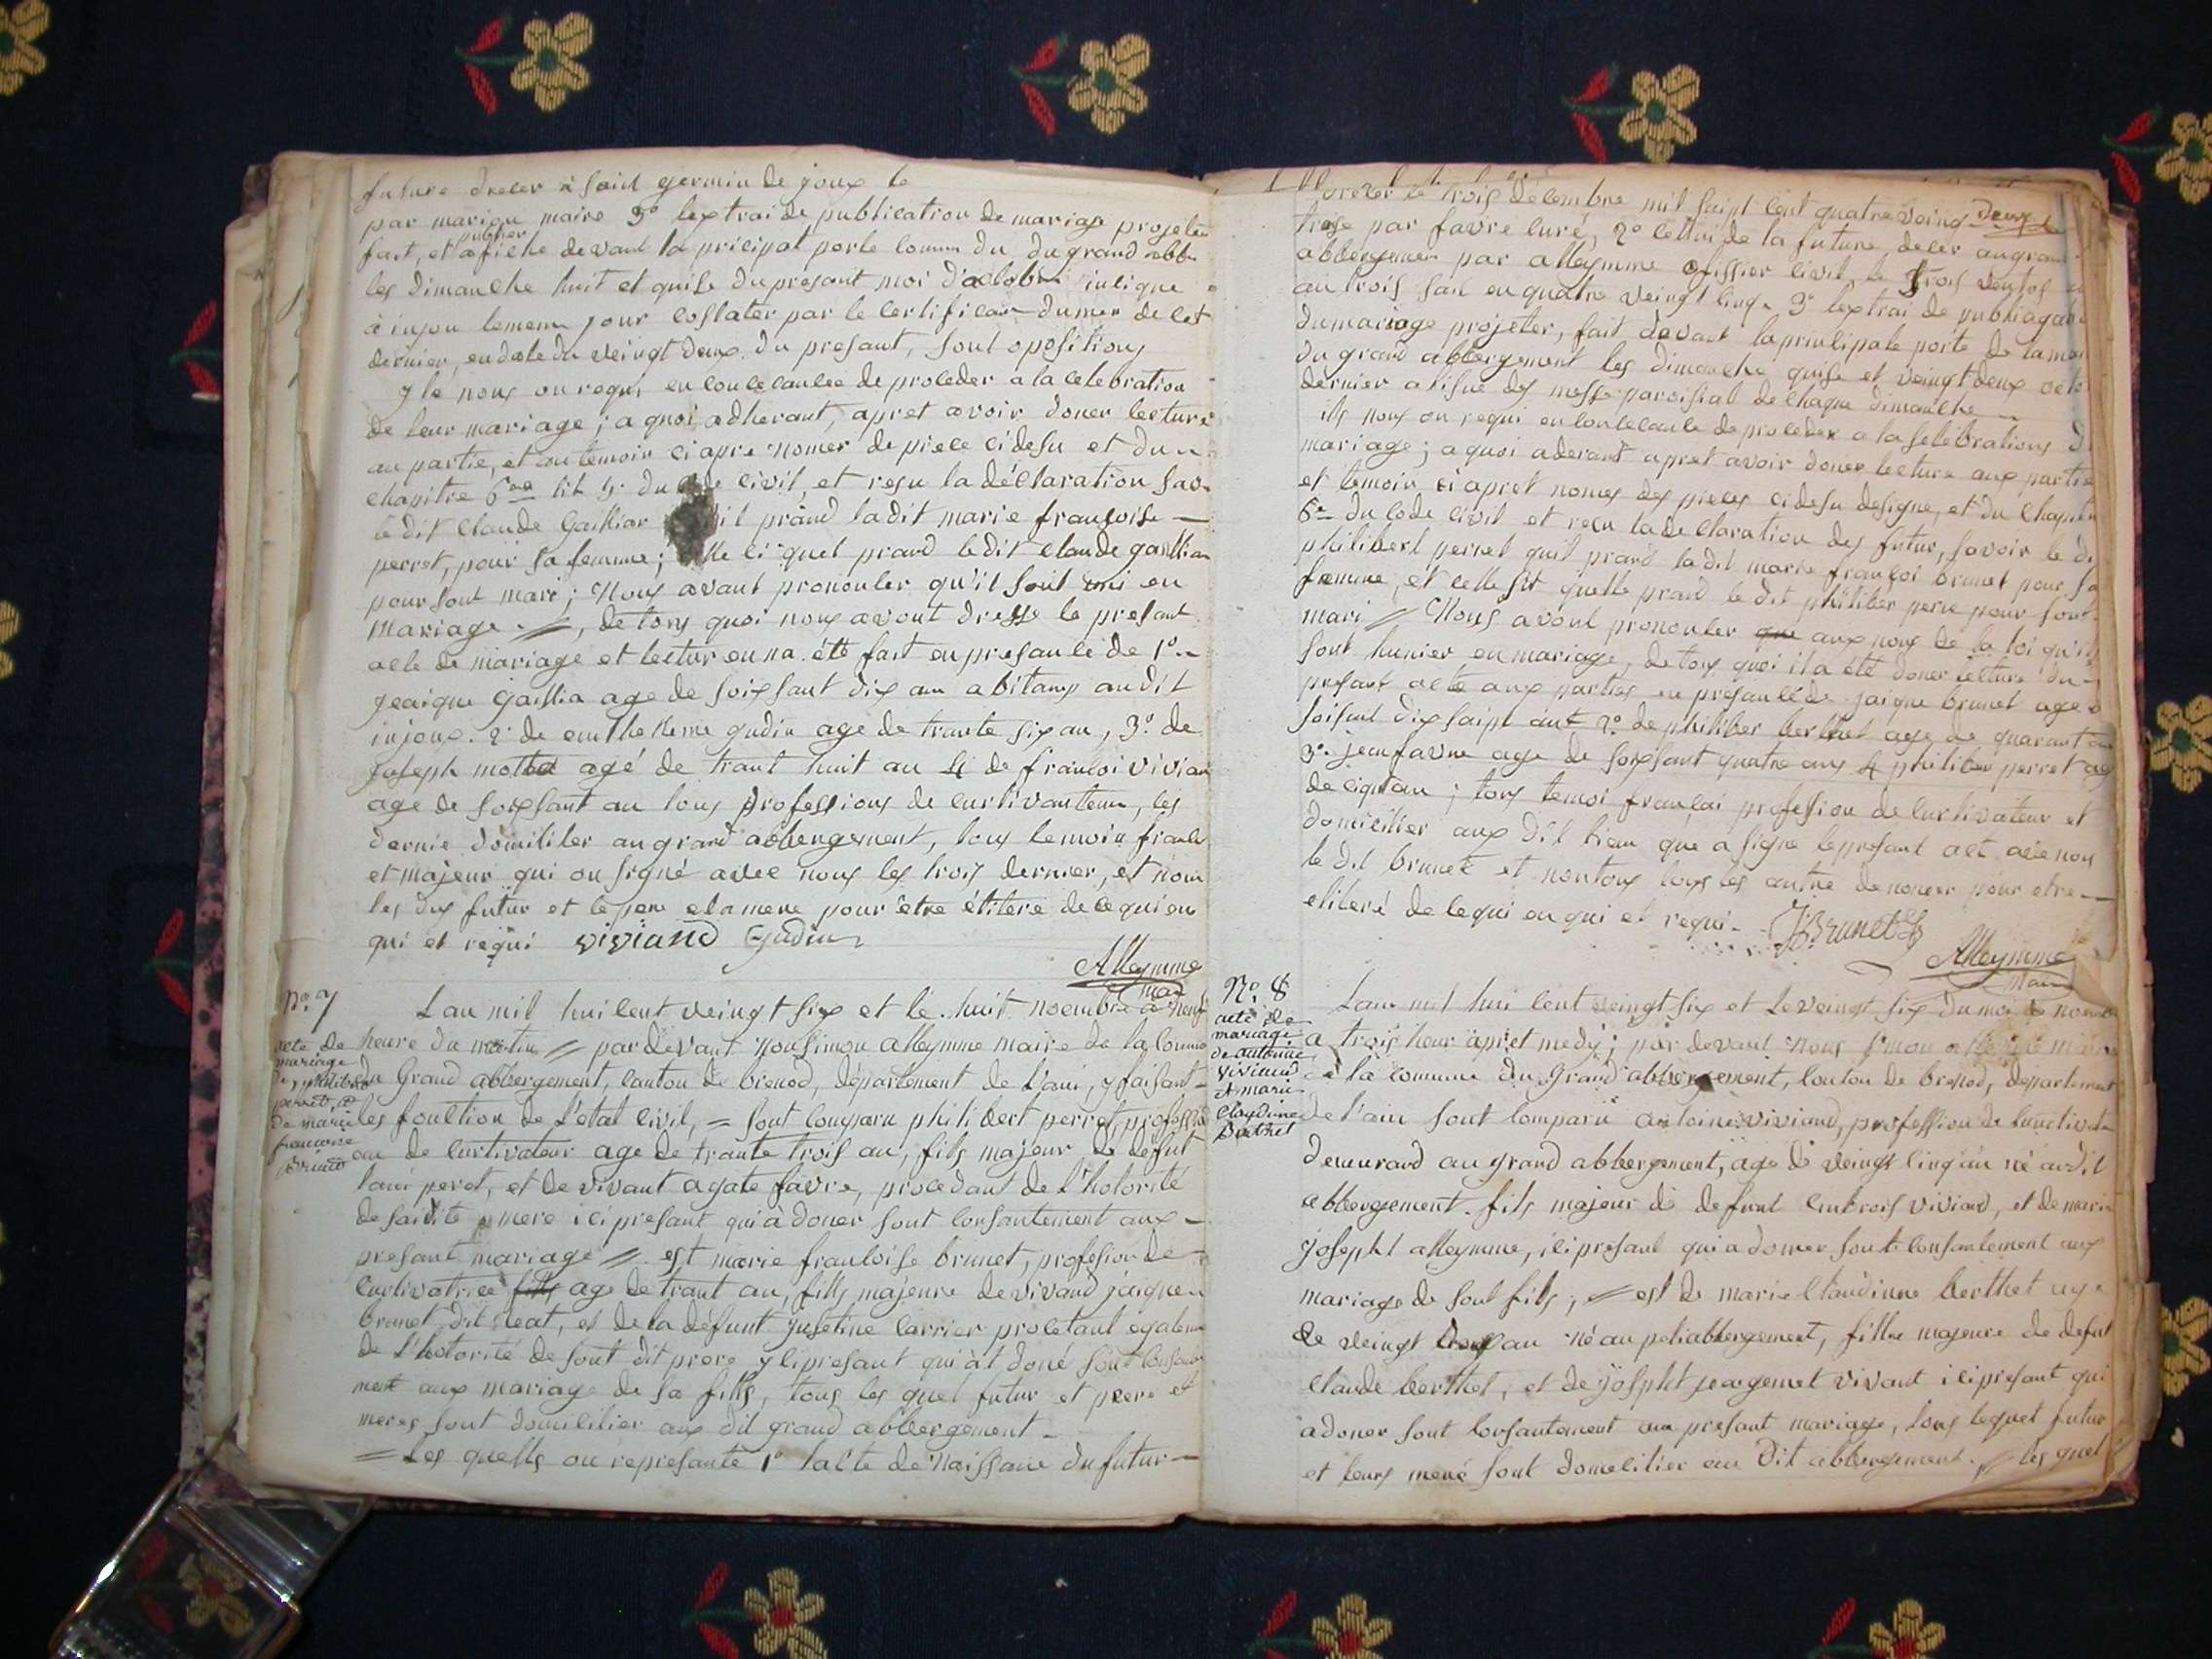 future dreser a saint germin de joux le
par marion maire 3° lextrai de publication de mariage projeter
fait, et publier afiche devant la pricipal porte comun du du grand abb
les dimanche huit et quise du presant moi d'actobre
a injou lememe jour costater par le certificat du mer de cet
dernier, en date du veingt deux du presant, sent oposition,
y le nous on requi en consecance de proceder a la celebration
de leur mariage; a quoi adherant, apret avoir doner lecture
au partie, et au temoin ci apre nomer de piece cidesu et du
chapitre 6me tit 5 du code civil, et resu la déclaration savoir
le dit Claude Gaillar il prand ladit marie françoise —
perret, pour sa femme; elle ci quel prand le dit claude gaillar
pour sont mari; Nous avant prononcer qu'il sont uni en
Mariage. =, de tous quoi nous avont dresse le presant
acte de mariage et lectur en na été fait en presance de 1°
jeaique Gaillia age de soixsant dix an abitans audit
injoux. 2° de gudin age de trante six an, 3° de
joseph mottet agé de trant huit an 4 de francoi vivian
age de soixsant an tous professions de curtivanteur, les
dernie domiciler au grand abbergement, tous temoin
et majeur qui on signé avec nous les trois dernier, et non
les dux futur et le pere et la mere pour etre étitere de ce qui on
qui et requi viviand Gudin
Alleymme
mair
N° 7
acte de
mariage
de philibert
perret, et
de marie
francoise
brunet
Lan mil hui cent veingt six et le huit noembre a neuf
heure du matin = par devant nou simon alleymme maire de la comune
du Grand abbergement, canton de brenod, département de l'ain, y faisant
les fonction de l'etat civil, = sont comparu philibert perret, professi
on de curtivateur age de trante trois an, fils majeur de défut
perret, et de vivant agate favre, procedant de l'hotorité
de saidite mere ici presant qui à doner sont consantement aux
presant mariage = est marie francoise brunet, profesion de
curtivatrice fills age de trant an, fills majeure de vivand jaique
brunet dit leat, et de la défunt jusetine carrier procetant egaleme
de l'hotorité de sont dit prere y ci presant qui at doné sont consante
ment aux mariage de sa fills, tous les quel futur et peere et
meres sont domicilier aux dit grand abbergement —
= Les quells on représante 1° lacte de naissance du futur —
dreser le trois décembre mil saint cent quatre veing Deux
trese par favre curé, 2° cellui de la future deser au grand
abbergemen par alleymme ofissier civil, le trois ventos
an trois sai en quatre veingt cinq. 3° lextrai de publiagation
du mariage projeter, fait devant la principale porte de la mai
du grand abbergement les dimanche quise et veingt deux octo
dernier a lisue des messe paroisial de chaque dimanche —
ils nous on requi en consecance de proceder a la selebrations d
mariage; a quoi aderant apret avoir doner lecture aux partie
et temoin ci apret nomes des pieces cidesu designe, et du chapitre
6me du code civil et recu la declaration des futur, savoir le dit
philibert perret quil prand ladit marie françoi brunet pour sa
femme, et celle sit quelle prand le dit philiber peret pour sont
mari = Nous avont prononcer que aux nous de la loi qu'ils
sont hunier en mariage, de tous quoi il a été doner lecture du
presant acte aux parties en presance de jaique brunet age d
soisant dix saipt ant 2° de philiber berthet age de quarant an
3° jean favre age de soixsant quatre ans 4 philiber perret age
de ciqnt an; tous temoi françai profession de curtivateur et
domicilier aux dit lieux que a signe le presant act avec nous
le dit brunet et non tous les autre denomer pour etre —
etiteré de ce qui on qui et requi. JBrunet
Alleymme
Mair
N° 8
acte de
mariage
de antoinne
viviand
et marie
claudine
Berthet
Lan mil hui cent veingt six et le veingt six du moi de noembre
a trois heur apret medy; par devant nous simon alleymme maire
de la comune du Grand abbergement, conton de brenod, departement
de l'ain sont comparu antoine viviand, profession de
demeurand au grand abbergement, age de veingt cinq an né audit
abbergement. fils majeur de defunt viviand, et de marie
josepht alleymme, ici presant qui a doner sont consantement aux
mariage de sont fils; = est de marie claudinne berthet age
de veingt an né au peti abbergement, fille majeure de defut
claude berthet, et de josepht vivant ici presant qui
a doner sont consantement au presant mariage, tous lequel futur
et leurs meré sont domicilier au dit abbergement. = les quel